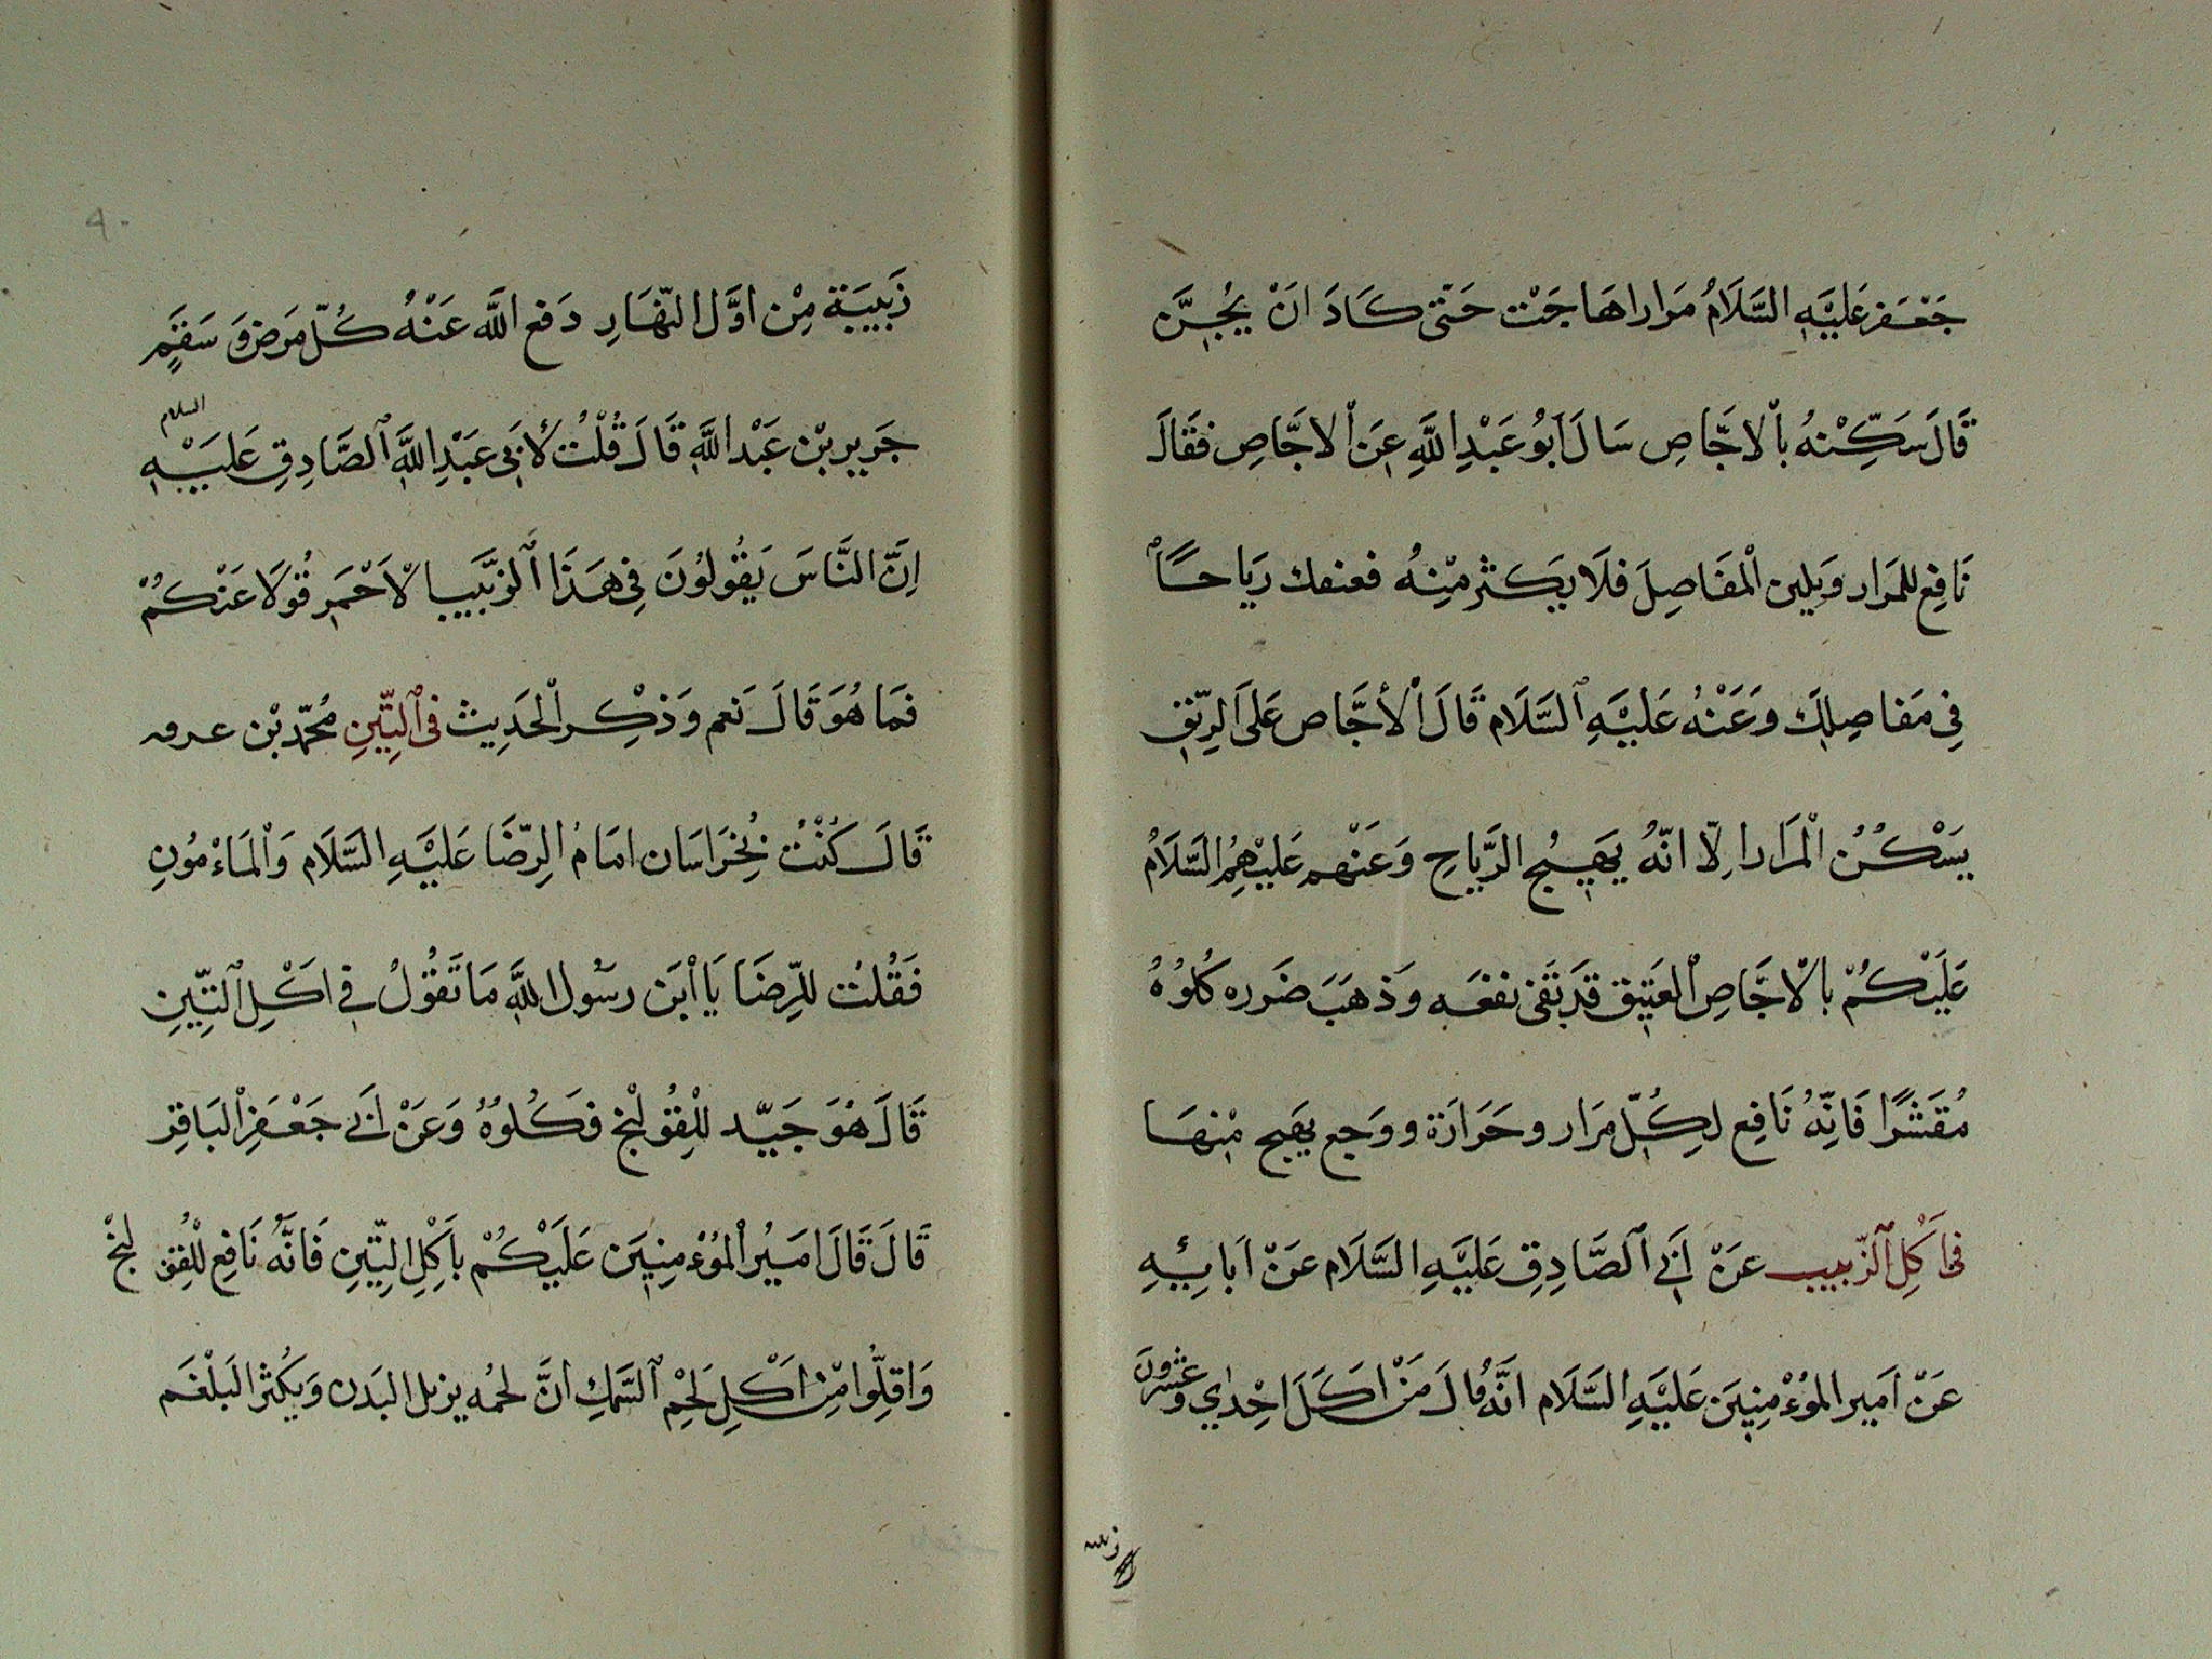 جَعْفَر عَلَيْهِ السَّلَامُ مَرارا هَاجَتْ حَتّى كَادَ انَ يُجَنَّ
قَالَ سَكِّنْهُ بالاجَّاصِ سَالَ ابُو عَبْدِ اللَّهِ عَنْ الاجَّاصِ فَقَالَ
نَافِع للمَرَار وَيلين الْمَفَاصِلَ فَلَا يَكثر مِنْهُ رِيَاحًا
فِي مَفاصِلِكَ وَعَنْهُ عَلَيْهِ السَّلَام قَالَ الْأجَّاص عَلَى الرِّيْقِ
يَسْكُنُ الْمَرَار اِلّا انّهُ يَهِيجُ الرَّيَاحِ وَعَنْهم عَلَيْهِمُ السَّلَامُ
عَلَيْكُمْ بالْاجَّاصِ الْعَتِيق قَد بَقَى نفعَه وَذهَبَ ضَرره كُلُوُهُ
مُقَشَّرًا فَانِّهُ نَافِع لِكُلّ مَرَار وحَرَارَة ووَجع يهَيج مْنهَا
فى أَكْلِ الزّبيب عَنْ اَبِي الصَّادِقِ عَلَيْهِ السَّلَام عَنْ اَبَائِهِ
عَنْ اَمير المُؤْمِنِينَ عَلَيْهِ السَّلَام انَّهُ قالَ مَنْ اكَلَ احْدٰي وعِشْرُونَ
زبيبه
زَبِيبَة مِنْ اوَّل النّهَارِ دَفع اللَّه عَنْهُ كُلّ مَرَض وَ سَقَمٍ
جَرِير بْن عَبْد اللَّهِ قَالَ قُلْتُ لأبَي عَبْدِ اللَّهِ الصَّادِقِ عَلَيْهِ السلام
اِنَّ النَّاسَ يَقُولُونَ فِي هَذَا الزَّبَيب الْاَحْمَر قُوْلَا عَنْكُمْ
فَمَا هُوَ قَالَ نَعم وَذكِر الْحَدِيث فى التِّينِ مُحمّد بْن عرفه
قَالَ كُنْتُ بُخِرَاسَان امَامُ الرِّضَا عَلَيْهِ السَّلَام وَالْمَاءْمُونِ
فَقُلْت للرِّضَا يَا ابْن رسُول اللَّهِ مَا تَقُولُ فِي اكْلِ التِّينِ
قَالَ هُوَ جَيّد لِلْقُولَنْج فَكُلوُهُ وَعَنْ اَبي جَعْفَرِ الْبَاقِر
قَالَ قَالَ امَيُر الْمُؤْمِنِينَ عَلَيْكُمْ بأَكِلِ التِّينِ فَانَّهُ نَافِع لْلقُولنْج
وَاقِلُّوا مِنْ اكْلِ لَحْمِ السَّمَكِ انَّ لحمُه يزبل البَدن وَيكُثر البَلْغَم